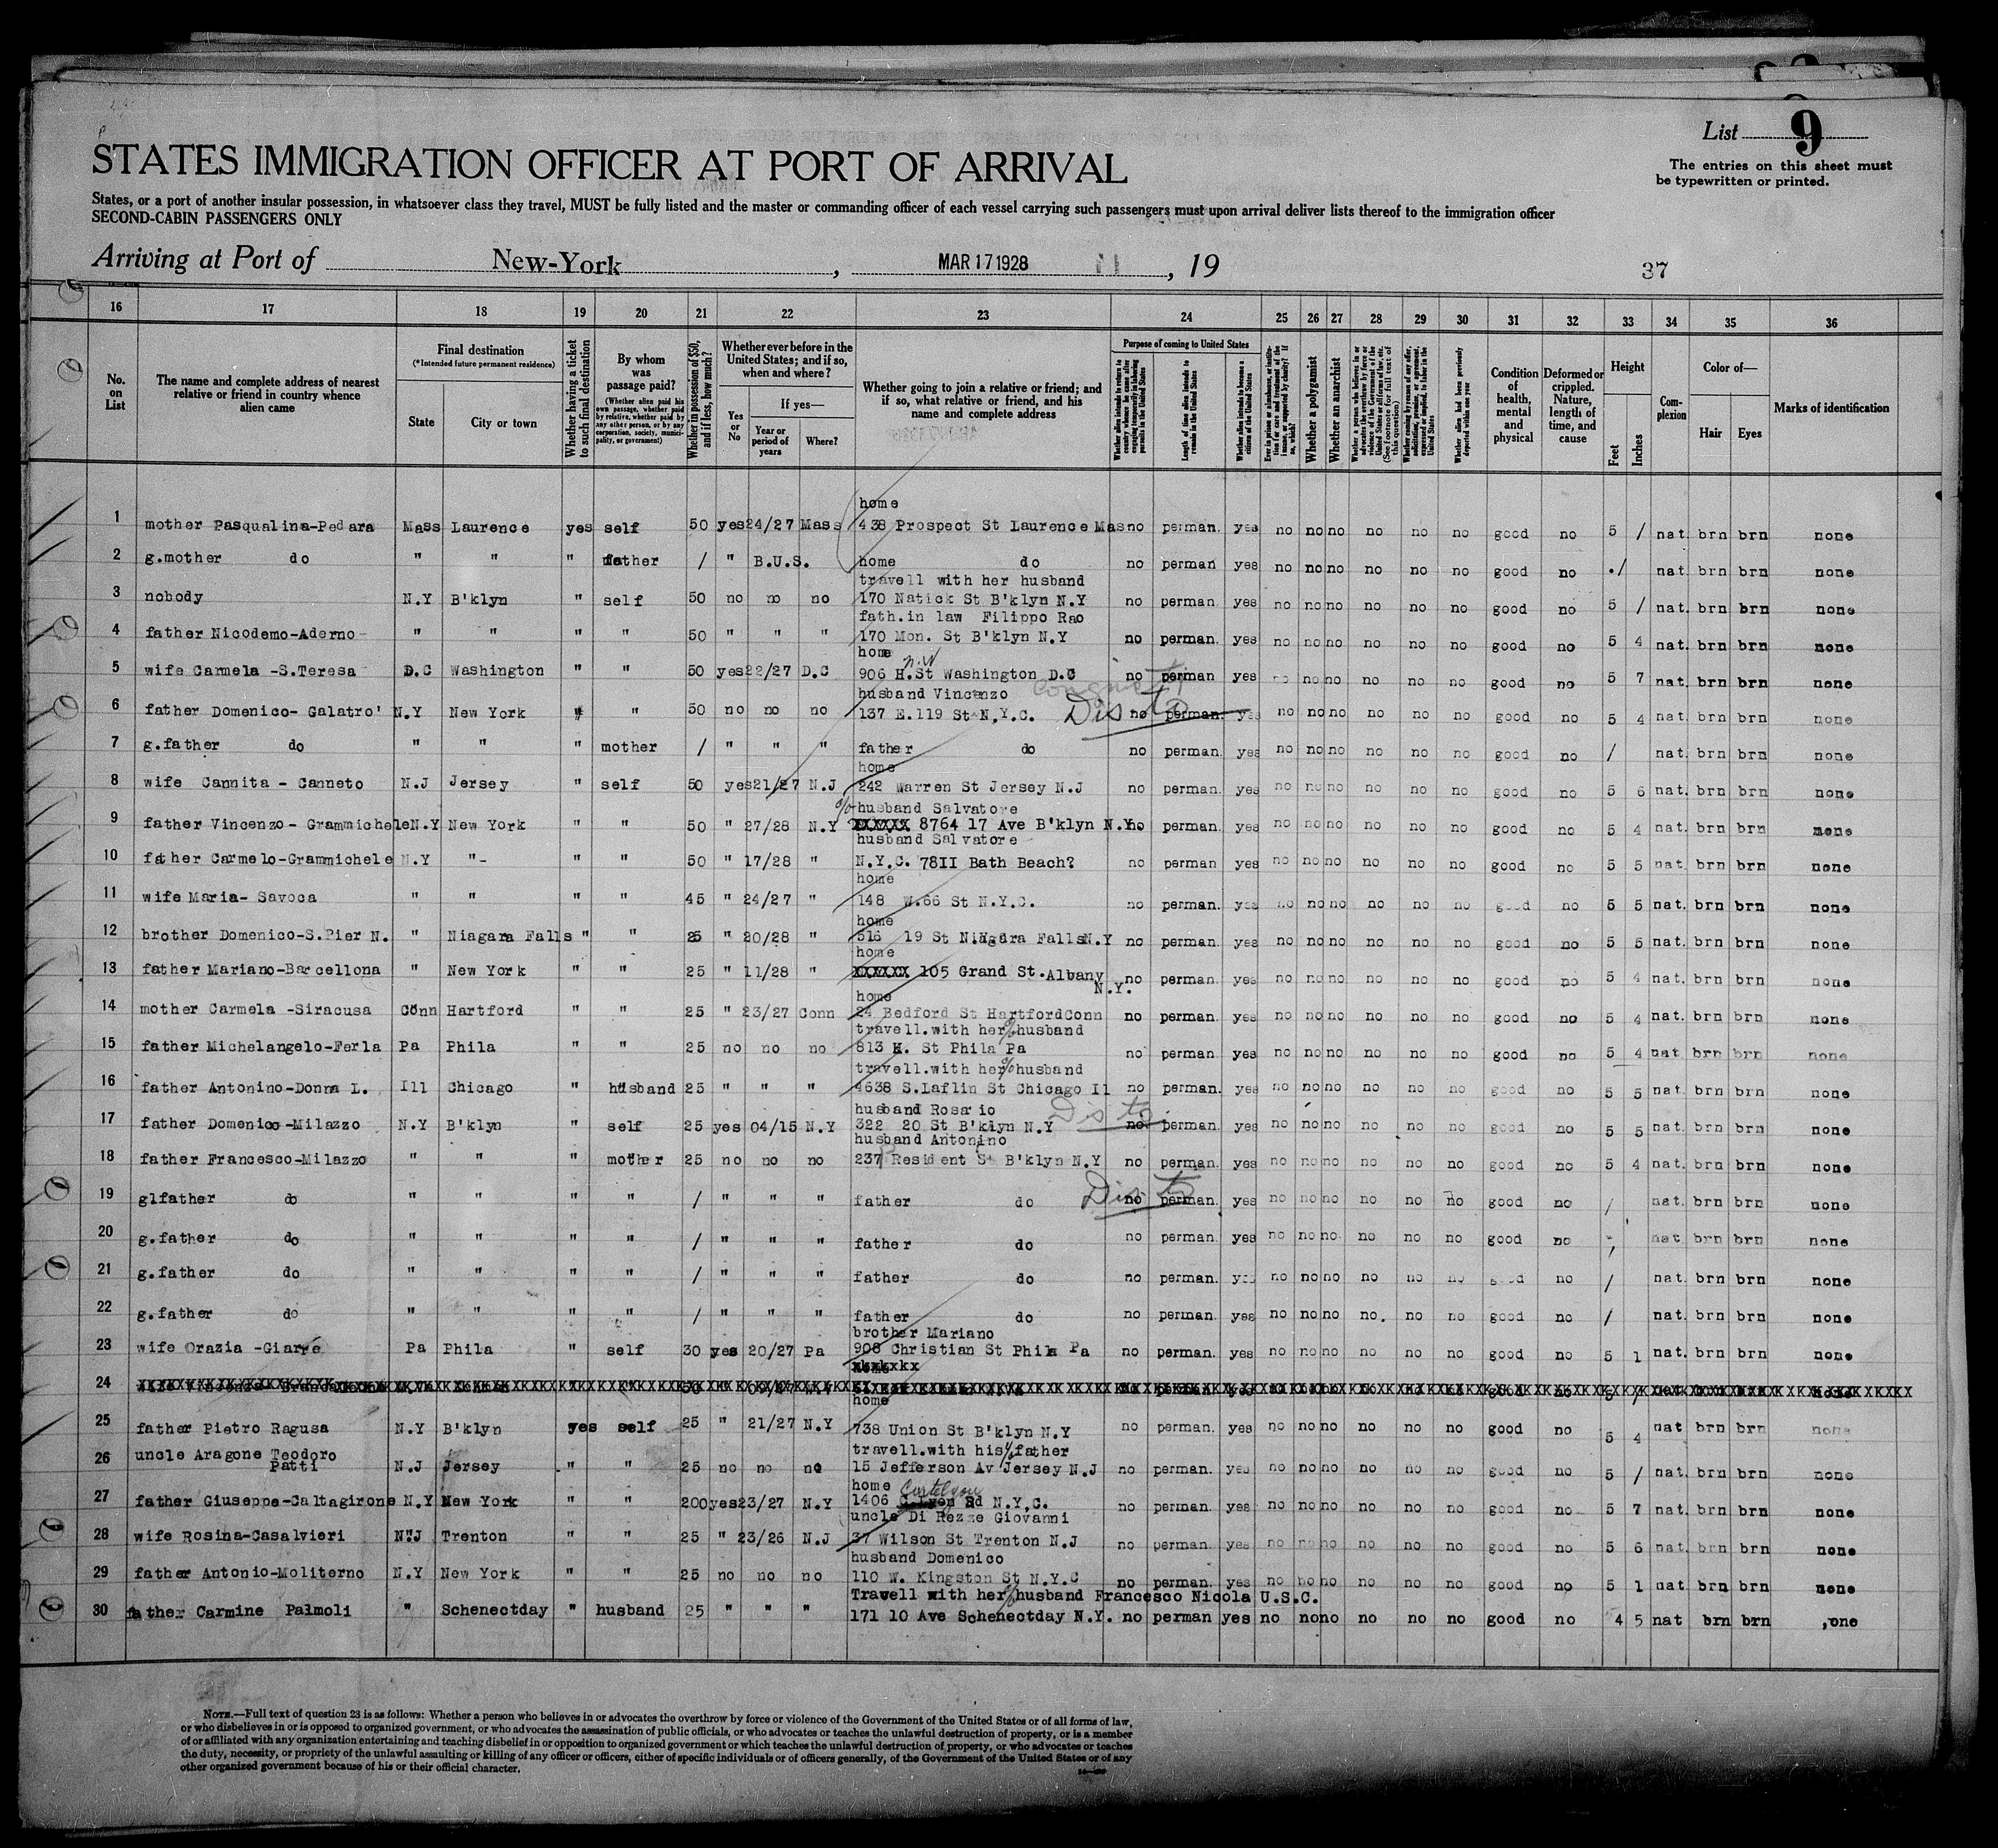 List 9
The entries on this sheet must
be typewritten or printed.
STATES IMMIGRATION OFFICER AT PORT OF ARRIVAL
States, or a port of another insular possession, in whatsoever class they travel, MUST be fully listed and the master or commanding officer of each vessel carrying such passengers must upon arrival deliver lists thereof to the immigration officer
SECOND-CABIN PASSENGERS ONLY
Arriving at Port of New-York, MAR 17 1928, 19
37
16 17 18 19 20 21 22 23 24 25 26 27 28 29 30 31 32 33 34 35 36
No. on List
The name and complete address of nearest relative or friend in country whence alien came
Final destination
(*Intended future permanent residence)
State
City or town
Whether having a ticket to such final destination
By whom was passage paid?
(Whether alien paid his own passage, whether paid by relative, whether paid by any other person, or by any corporation, society, municipality, or government)
Whether in possession of $50, and if less, how much?
Whether ever before in the United States; and if so, when and where?
Yes or No
If yes—
Year or period of years
Where?
Whether going to join a relative or friend; and if so, what relative or friend, and his name and complete address
Purpose of coming to United States
Whether alien intends to return to country whence he came after engaging temporarily in laboring pursuits in the United States
Length of time alien intends to remain in the United States
Whether alien intends to become a citizen of the United States
Whether a polygamist
Whether an anarchist
Condition of health, mental and physical
Deformed or crippled. Nature, length of time, and cause
Height
Feet
Inches
Complexion
Color of—
Hair
Eyes
Marks of identification
home
1 mother Pasqualina-Pedara Mass Laurence yes self 50 yes 24/27 Mass 438 Prospect St Laurence Mas no perman. yes no no no no no no good no 5 / nat. brn brn none
2 g.mother do " " " father / " B.U.S. home do no perman yes no no no no no no good no / nat. brn brn none
travell with her husband
3 nobody N.Y B'klyn " self 50 no no no 170 Natick St B'klyn N.Y no perman. yes no no no no no no good no 5 / nat. brn brn none
fath.in law Filippo Rao
4 father Nicodemo-Aderno " " " " 50 " " " 170 Mon. St B'klyn N.Y no perman. yes no no no no no no good no 5 4 nat. brn brn none
home
5 wife Carmela -S.Teresa D.C Washington " " 50 yes 22/27 D.C 906 H.St N.W Washington D.C no perman yes no no no no no no good no 5 7 nat. brn brn none
husband Vincenzo
6 father Domenico- Galatro' N.Y New York " " 50 no no no 137 E.119 St N.Y.C. Dis to no perman. yes no no no no no no good no 5 4 nat. brn brn none
7 g.father do " " " mother / " " " father do no perman. yes no no no no no no good no / nat. brn brn none
home
8 wife Cannita - Canneto N.J Jersey " self 50 yes 21/27 N.J 242 Warren St Jersey N.J no perman. yes no no no no no no good no 5 6 nat. brn brn none
c/o husband Salvatore
9 father Vincenzo- Grammichele N.Y New York " " 50 " 27/28 N.Y XXXXXX 8764 17 Ave B'klyn N.Y. no perman. yes no no no no no no good no 5 4 nat. brn brn none
husband Salvatore
10 father Carmelo-Grammichele N.Y "- " " 50 " 17/28 " N.Y.C. 78II Bath Beach? no perman yes no no no no no no good no 5 5 nat. brn brn none
home
11 wife Maria- Savoca " " " " 45 " 24/27 " 148 W.66 St N.Y.C. no perman. yes no no no no no no good no 5 5 nat. brn brn none
home
12 brother Domenico-S.Pier N. " Niagara Falls " " 25 " 20/28 " 516 19 St Niagara Falls N.Y no perman. yes no no no no no no good no 5 5 nat. brn brn none
home
13 father Mariano-Barcellona " New York " " 25 " 11/28 " XXXXXX 105 Grand St. Albany N.Y. no perman. yes no no no no no no good no 5 4 nat. brn brn none
home
14 mother Carmela -Siracusa Conn Hartford " " 25 " 23/27 Conn 24 Bedford St Hartford Conn no perman. yes no no no no no no good no 5 4 nat. brn brn none
travell.with her c/o husband
15 father Michelangelo-Ferla Pa Phila " " 25 no no no 813 K. St Phila Pa no perman. yes no no no no no no good no 5 4 nat brn brn none
travell.with her c/o husband
16 father Antonino-Donna L. Ill Chicago " husband 25 " " " 4638 S.Laflin St Chicago Il no perman. yes no no no no no no good no 5 5 nat. brn brn none
husband Rosario
17 father Domenico-Milazzo N.Y B'klyn " self 25 yes 04/15 N.Y 322 20 St B'klyn N.Y Dis to no perman. yes no no no no no no good no 5 5 nat. brn brn none
husband Antonino
18 father Francesco-Milazzo " " " mother 25 no no no 237 Resident St B'klyn N.Y no perman. yes no no no no no no good no 5 4 nat. brn brn none
19 glfather do " " " " / " " " father do Dis to no perman. yes no no no no no no good no / nat. brn brn none
20 g.father do " " " " / " " " father do no perman. yes no no no no no no good no nat. brn brn none
21 g.father do " " " " / " " " father do no perman. yes no no no no no no good no / nat. brn brn none
22 g.father do " " " " / " " " father do no perman. yes no no no no. no no good no / nat. brn brn none
brother Mariano
23 wife Orazia -Giarré Pa Phila " self 30 yes 20/27 Pa 908 Christian St Phila Pa no perman. yes no no no no no no good no 5 1 nat. brn brn none
24
home
25 father Pietro Ragusa N.Y B'klyn yes self 25 " 21/27 N.Y 738 Union St B'klyn N.Y no perman. yes no no no no no no good no 5 4 nat brn brn none
travell.with his c/o father
26 uncle Aragone Teodoro Patti N.J Jersey " " 25 no no no 15 Jefferson Av Jersey N.J no perman. yes no no no no no no good no 5 / nat. brn brn none
home
27 father Giuseppe-Caltagirone N.Y New York " " 200 yes 23/27 N.Y 1406 Cortelyou Rd N.Y.C. no perman. yes no no no no no no good no 5 7 nat. brn brn none
uncle Di Rezze Giovanni
28 wife Rosina-Casalvieri N.J Trenton " " 25 " 23/26 N.J 37 Wilson St Trenton N.J no perman. yes no no no no no no good no 5 6 nat. brn brn none
husband Domenico
29 father Antonio-Moliterno N.Y New York " " 25 no no no 110 W. Kingston St N.Y.C no perman. yes no no no no no no good no 5 1 nat brn brn none
Travell with her c/o husband Francesco Nicola U.S.C.
30 father Carmine Palmoli " Schenectday " husband 25 " " " 171 10 Ave Schenectday N.Y. no perman yes no no no no no no good no 4 5 nat brn brn ,one
NOTE.—Full text of question 23 is as follows: Whether a person who believes in or advocates the overthrow by force or violence of the Government of the United States or of all forms of law,
or who disbelieves in or is opposed to organized government, or who advocates the assassination of public officials, or who advocates or teaches the unlawful destruction of property, or is a member
of or affiliated with any organization entertaining and teaching disbelief in or opposition to organized government or which teaches the unlawful destruction of property, or who advocates or teaches
the duty, necessity, or propriety of the unlawful assaulting or killing of any officer or officers, either of specific individuals or of officers generally, of the Government of the United States or of any
other organized government because of his or their official character.